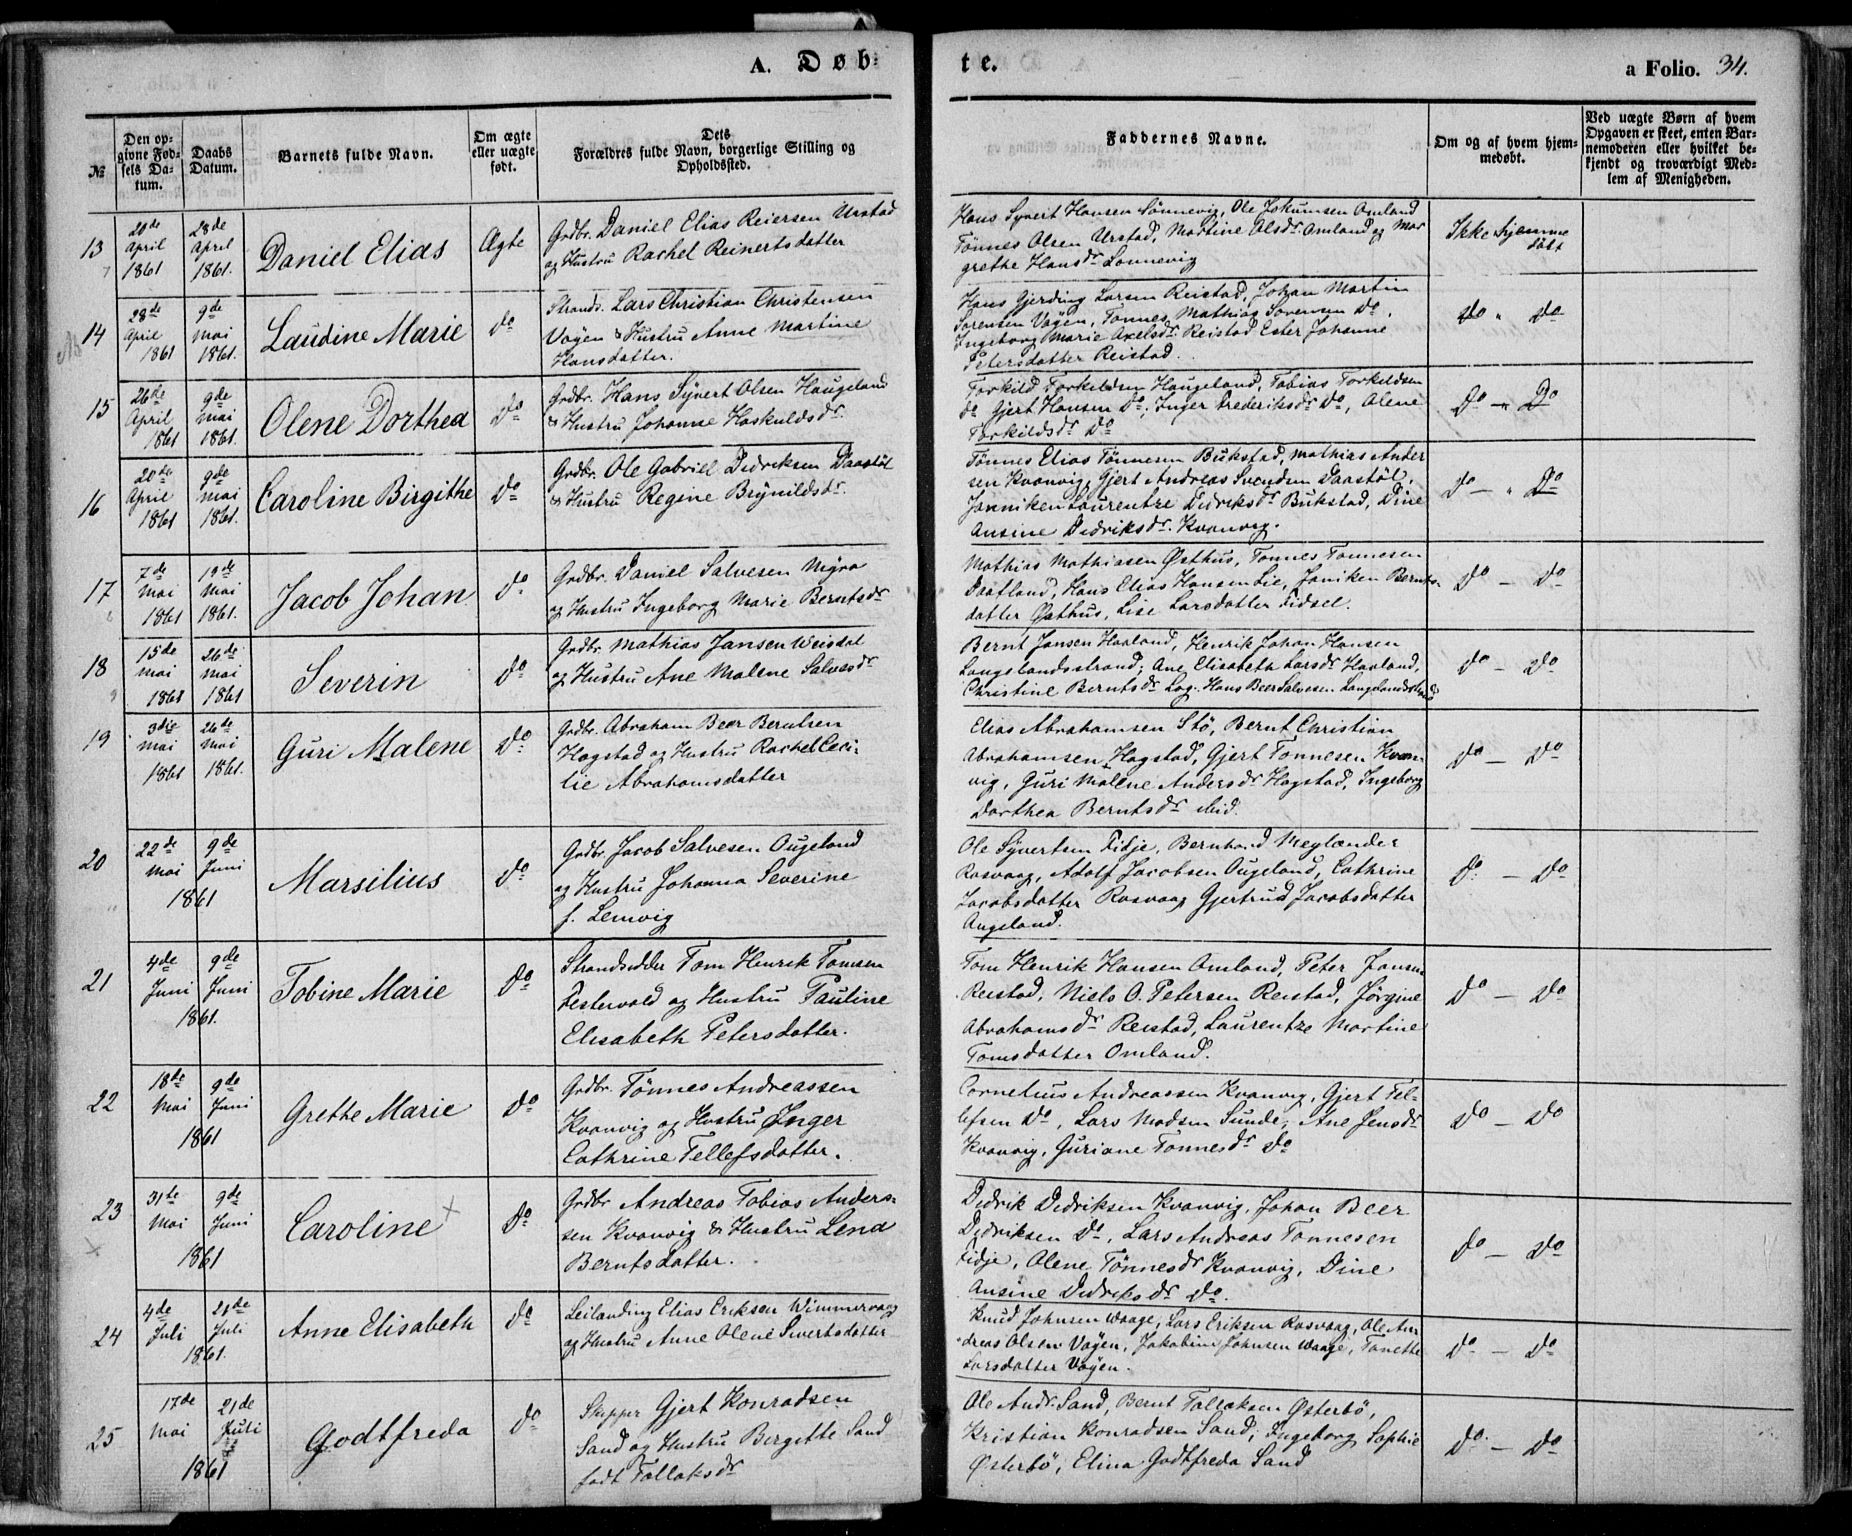 A. Døb-
te.
a Folio. 34.
№
Den op-
givne Fød-
sels Da-
tum.
Daabs
Datum.
Barnets fulde Navn.
Om ægte
eller uægte
født.
Dets
Forældres fulde Navn, borgerlige Stilling og
Opholdssted.
Faddernes Navne.
Om og af hvem hjem-
medøbt.
Ved uægte Børn af hvem
Opgaven er skeet, enten Bar-
nemoderen eller hvilket be-
kjendt og troværdigt Med-
lem af Menigheden.
13
April
1861
28de
April
1861.
Daniel Elias
Ægte
Grdbr. Daniel Elias Reiersen Urstad
og Hustru Rachel Reinertsdatter
Hans Syvert Hansen Sønnevig, Ole Jokumsen Omland
Tønnes Olsen Urstad, Martine Olsdr. Omland og Mar
grethe Hansdr.
Ikke hjemme
døbt
14
28de
April
1861
9de
Mai
1861.
Laudine Marie
do
Strands. Lars Christian Christensen
Vågen & Hustru Anne Martine
Hansdatter.
Hans Gjerding Larsen Reistad, Johan Martin
Sørensen Vågen, Tønnes Mathias Sørensen Do,
Ingeborg Marie Axelsdr. Reistad Ester Johanne
Petersdatter Reistad.
Do " do
15
26de
April
1861
9de
Mai
1861.
Olene Dorthea
Do
Grdbr. Hans Syvert Olsen Haugeland
& Hustru Johanne Haskuldsdr.
Torkild Torkildsen Haugeland, Tobias Torkildsen
do Gjert Hansen Do, Inger Frederiksdr. Do, Olene
Torkildsdr. Do
Do - " Do
16
20de
April
1861
9de
Mai
1861.
Caroline Birgithe
Do
Grdbr. Ole Gabriel Didriksen Daastøl
& Hustru Regine Brynildsdr.
Tønnes Elias Tønnesen Bukstad, Mathias Ander
sen Kvanvig, Gjert Andreas Svendsen Daastøl,
Janniken Laurentze Didriksdr. Bukstad, Dine
Ansine Didriksdr. Kvanvig.
do - " Do
17
7de
Mai
1861
19de
Mai
1861.
Jacob Johan
do
Grdbr. Daniel Salvesen Myra
og Hustru Ingeborg Marie Berntsdr.
Mathias Mathiasen Østhus, Tønnes Tønnesen
Hans Elias Hansen Lie, Janiken Bernts-
datter Østhus, Lise Larsdatter Fidsel.
Do - do
18
15de
Mai
1861
26de
Mai
1861
Severin
do
Grdbr. Mathias Jansen
og Hustru Ane Malene Salvesdr.
Bernt Jansen Haaland, Henrik Johan Hansen
Langelandsstrand; Ane Elisabeth Larsdr. Haaland,
Christine Berntsdr. Log. Hans Beer Salvesen Langelandsstrand
do - do
19
3die
Mai
1861
26de
Mai
1861.
Guri Malene
Do
Grdbr. Abraham Beer Berntsen
Hagstad og Hustru Rachel Ceci-
lie Abrahamsdatter
Elias Abrahamsen Stø, Bernt Christian
Abrahamsen Hagstad, Gjert Tønnesen Kvan-
vig, Guri Malene Andersdr. Hagstad, Ingeborg
Dorthea Berntsdr. ibid.
do - do
20
22de
Mai
9de
Juni
1861
Marsilius
do
Grdbr. Jacob Salvesen Ougeland
og Hustru Johanna Severine
f. Lemvig
Ole Syvertsen Fidje, Bernhard Meylænder
Rosvaag, Adolf Jacobsen Ougeland, Cathrine
Jacobsdatter Rosvaag Gjertrud Jacobsdatter
Augeland.
do - Do
21
4de
Juni
9de
Juni
1861.
Tobine Marie
Do
Strandsidder Tom Henrik Tomsen
Festervold og Hustru Pauline
Elisabeth Petersdatter.
Tom Henrik Hansen Omland, Peter Jansen
Reistad, Niels O. Petersen Reistad, Jørgine
Abrahamsdr. Reistad, Laurentze Martine
Tomsdatter Omland.
Do - do
22
18de
Mai
9de
Juni
1861
Grethe Marie
do
Grdbr. Tönnes Andreassen
Kvanvig og Hustru Inger
Cathrine Tellefsdatter.
Cornelius Andreassen Kvanvig, Gjert Tel-
lefsen Do, Lars Madsen Sunde, Ane Jensdr.
Kvanvig, Guriane Tønnesdr. Do
do - do
23
31te
Mai
9de
Juni
1861
Caroline
Do
Grdbr Andreas Tobias Anders-
sen Kvanvig & Hustru Lena
Berntsdatter.
Didrik Didriksen Kvanvig, Johan Beer
Didriksen Do, Lars Andreas Tønnesen
Fidje, Olene Tønnesdr. Kvanvig, Dine
Ansine Didriksdr. do.
do - do
24
4de
Juli
21de
Juli
1861.
Anne Elisabeth
do
Leilænding Elias Eriksen Wimmervaag
og Hustru Anne Olene Sivertsdatter
Knud Johnsen Waage, Lars Eriksen Rosvaag, Ole An-
dreas Olsen Vågen, Jakobine Johnsen Waage, Tonette
Larsdatter Vågen.
do - do
25
17de
Mai
21de
Juli
1861
Godtfreda
do
Skipper Gjert Konradsen
Sand og Hustru Bergitte Sand
født Tallaksdr.
Ole Andr. Sand, Bernt Tallaksen Østerbø,
Kristian Konradsen Sand, Ingeborg Sophie
Østerbø, Elina Godtfreda Sand
do - do